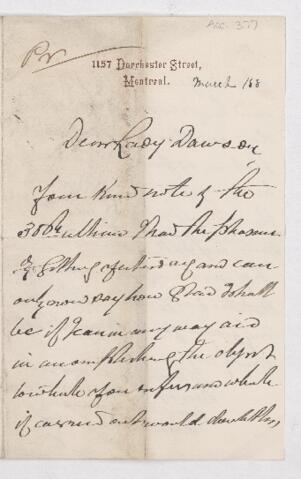 Acc. 377
Pr
1157 Dorchester Street,
Montreal.
March /88
Dear Lady Dawson
Your kind note of the
30th ultimo I had the pleasure
of getting yesterday and can
only now say how glad I shall
be if I can in any way aid
in accomplishing the object
to which you refer and which
if carried out would doubtless